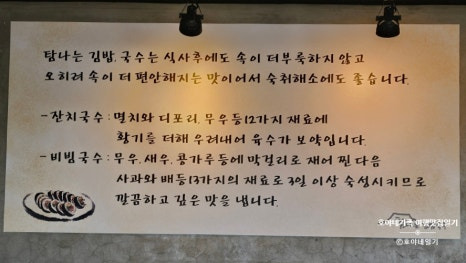 탐나는 김밥, 국수는 식사후에도 속이 더부룩하지 않고
오히려 속이 더 편안해지는 맛이어서 숙취해소에도 좋습니다.
- 잔치국수 : 멸치와 디포리, 무우등 12가지 재료에
황기를 더해 우려내어 육수가 보약입니다.
- 비빔국수 : 무우, 새우, 콩가루등에 막걸리로 재어 찐 다음
사과와 배등 13가지의 재료로 3일 이상 숙성시키므로
깔끔하고 깊은 맛을 냅니다.
호야네가족 여행맛집일기
©호야네일기